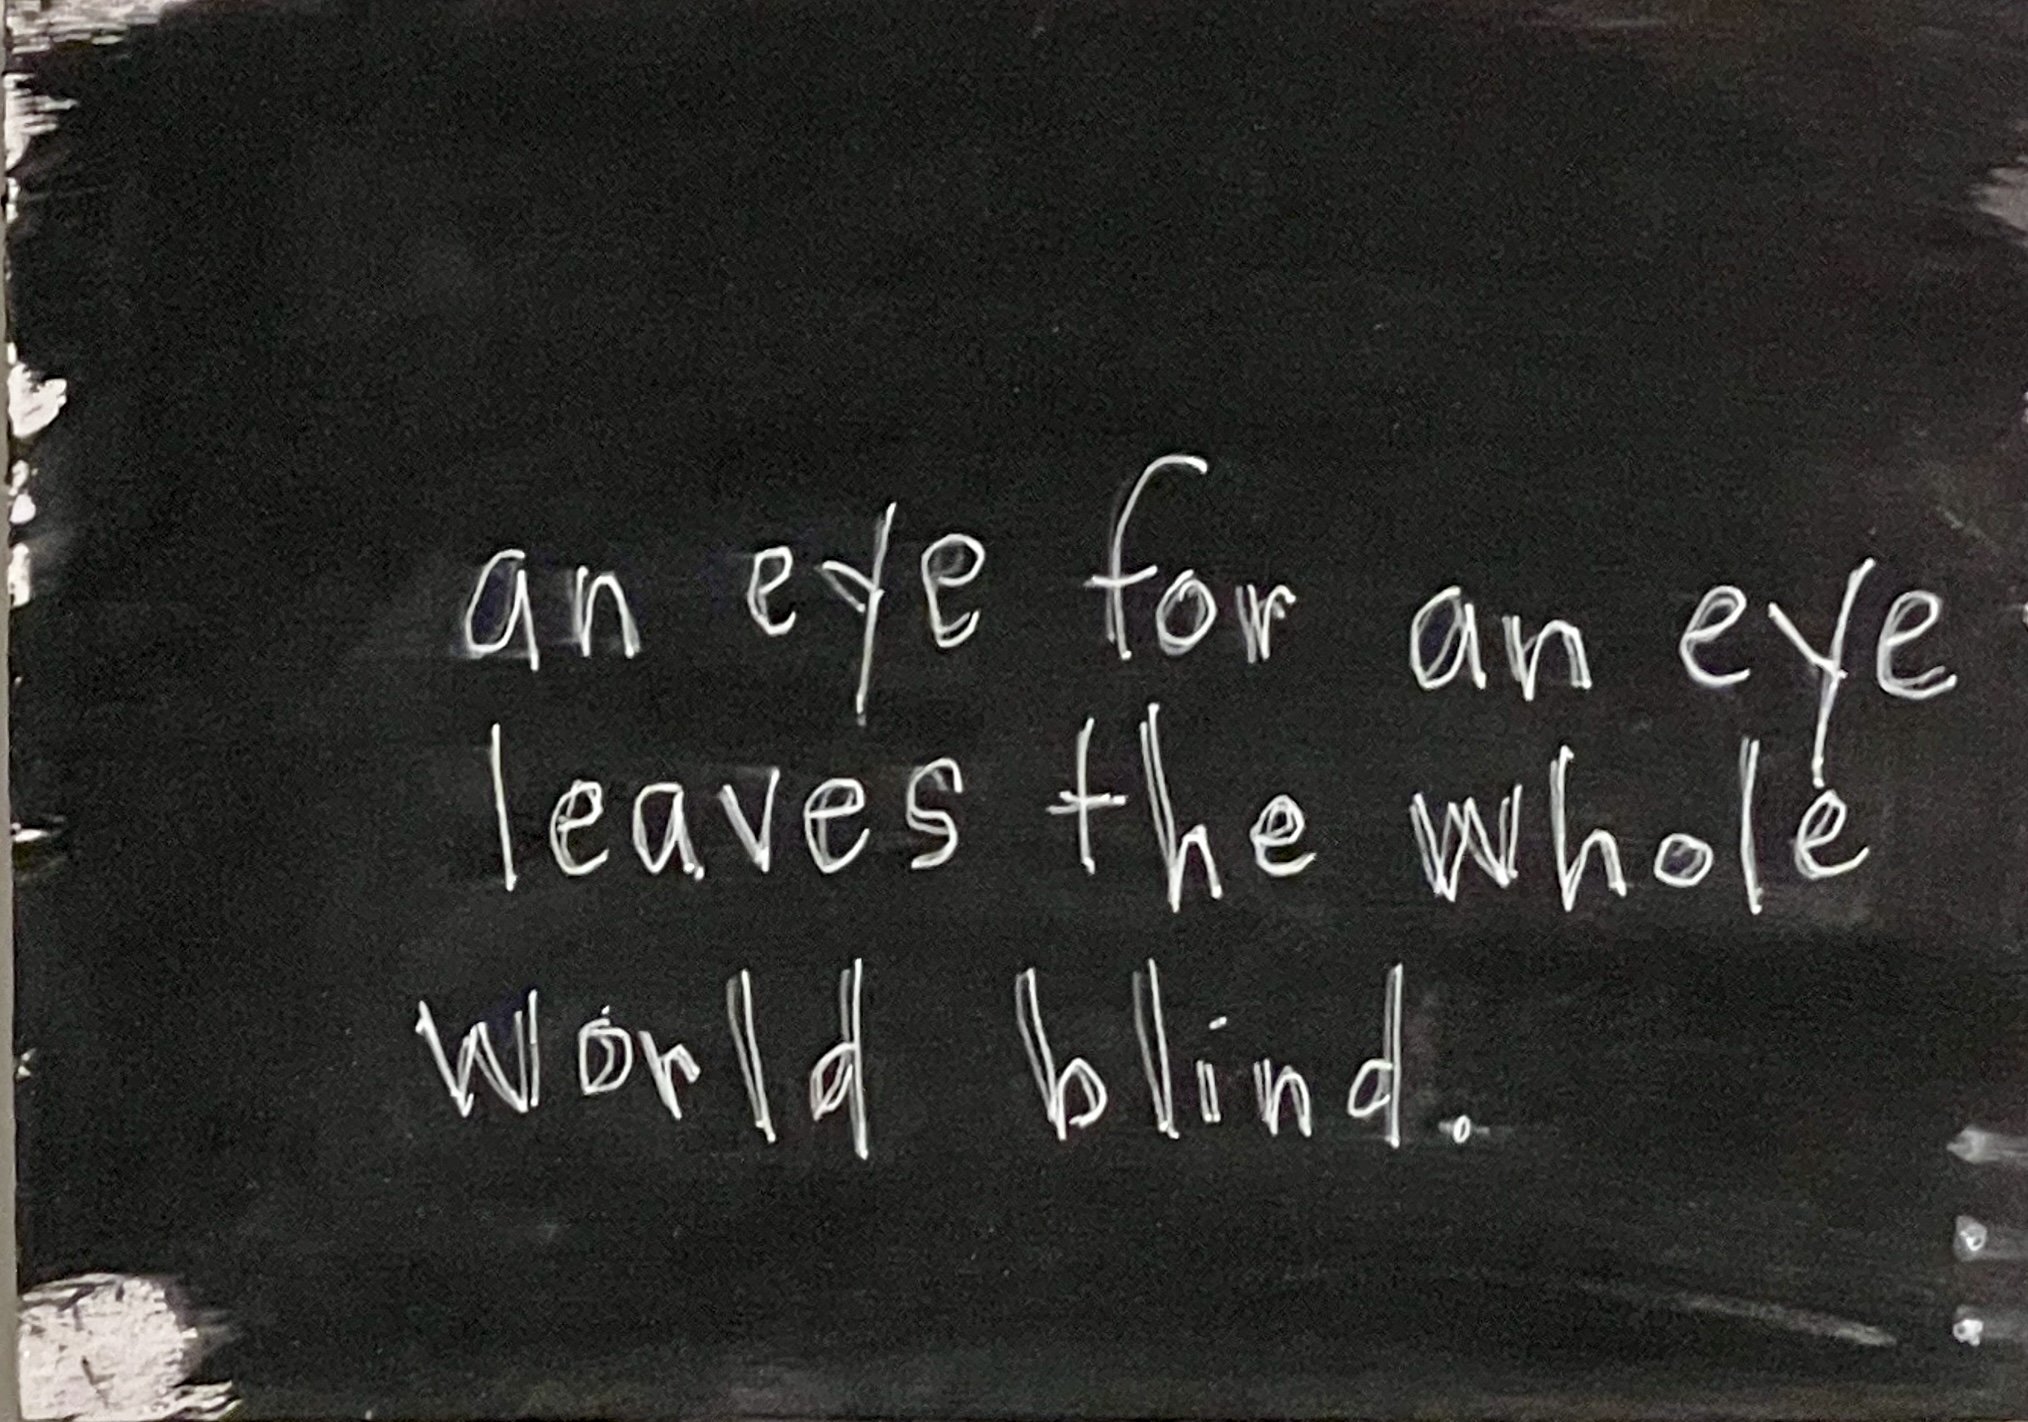 an eye for an eye
leaves the whole
world blind.